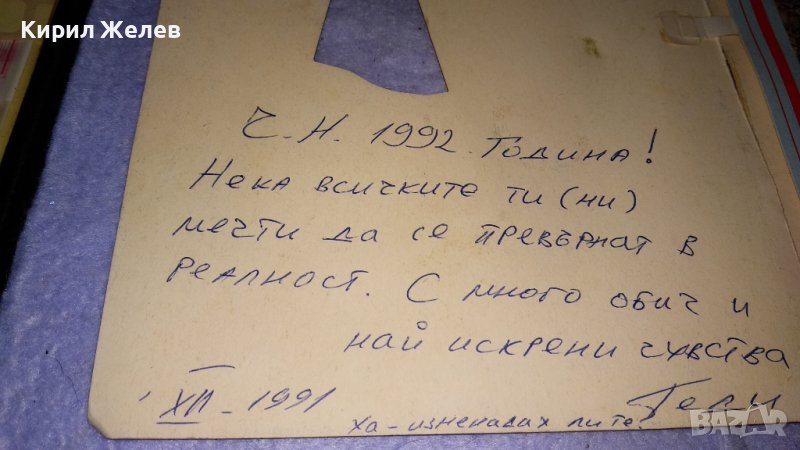 Кирил Желев
Ч.Н. 1992. Година!
Нека всичките ти (ни)
мечти да се превърнат в
реалност. С много обич и
най искрени чувства
XII - 1991
Ха-изненадах ли те?
BAZAR